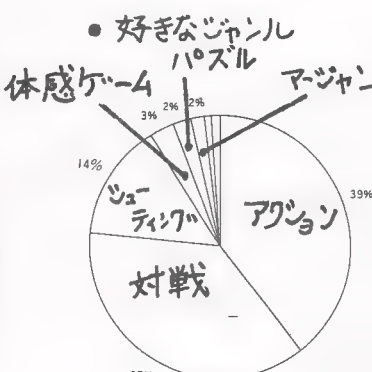 ● 好きなジャンル
パズル
体感ゲーム
マージャン
3%
2%
2%
14%
39%
シュー
ティング
アクション
対戦